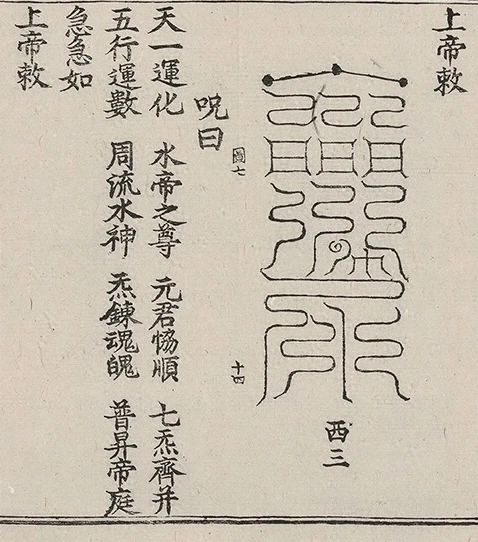 上帝敕
西三
圖七
十四
呪曰
天一運化 水帝之尊 元君恊順 七炁齊并
五行運數 周流水神 炁鍊魂魄 普昇帝庭
急急如
上帝敕